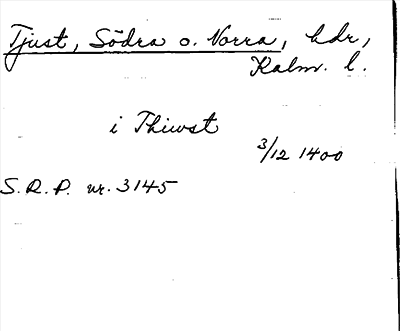 Tjust, Södra o. Norra, hdr,
Kalm. l.
i Thiwst
3/12 1400
S.R.P. nr. 3145